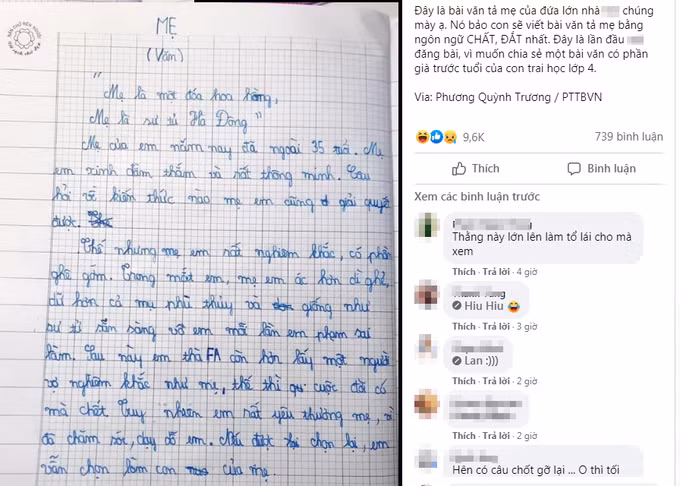 MẸ
(Văn)
"
Mẹ là một đóa hoa hồng,
Mẹ là sư tử Hà Đông"
Mẹ của em năm nay đã ngoài 35 tuổi. Mẹ
em xinh đằm thắm và rất thông minh. Câu
hỏi về kiến thức nào mẹ em cũng giải quyết
được.
Thế nhưng mẹ em rất nghiêm khắc, có phần
ghê gớm. Trong mắt em, mẹ em ác hơn dì ghẻ,
dữ hơn cả mụ phù thủy và giống như
sư tử sẵn sàng vồ em mỗi lần em phạm sai
lầm. Sau này em thà FA còn hơn lấy một người
vợ nghiêm khắc như mẹ, thế thì cuộc đời có
mà chết. Tuy nhiên em rất yêu thương mẹ, vì
đã chăm sóc, dạy dỗ em. Nếu được chọn lại, em
vẫn chọn làm con của mẹ.
Đây là bài văn tả mẹ của đứa lớn nhà chúng
mày ạ. Nó bảo con sẽ viết bài văn tả mẹ bằng
ngôn ngữ CHẤT, ĐẮT nhất. Đây là lần đầu
đăng bài, vì muốn chia sẻ một bài văn có phần
già trước tuổi của con trai học lớp 4.
Via: Phương Quỳnh Trương / PTTBVN
9,6K 739 bình luận
Thích Bình luận
Xem các bình luận trước
Thằng này lớn lên làm tổ lái cho mà
xem
Thích · Trả lời · 4 giờ
Hiu Hiu
Thích · Trả lời · 3 giờ
Lan :)))
Thích · Trả lời · 2 giờ
Thích · Trả lời · 2 giờ
Hên có câu chốt gỡ lại ... O thì tối